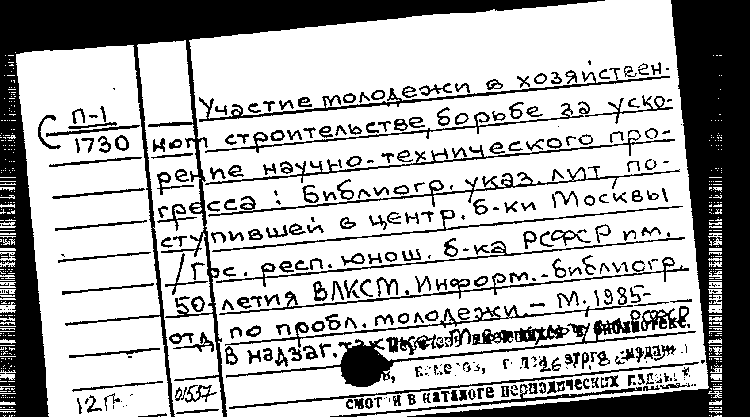 Участие молодежи в хозяйствен-
П-1
1730
ном строительстве, борьбе за уско-
рение научно-технического про-
гресса : Библиогр. указ. лит., по-
ступившей в центр. б-ки Москвы
/ Гос. респ. юнош. б-ка РСФСР им.
50-летия ВЛКСМ. Информ.-библиогр.
отд. по пробл. молодежи. - М., 1985-
В надзаг. также: М-во РСФСР
библиотеке.
этого издани
смотри в каталоге периодических изданий
12 П
01537